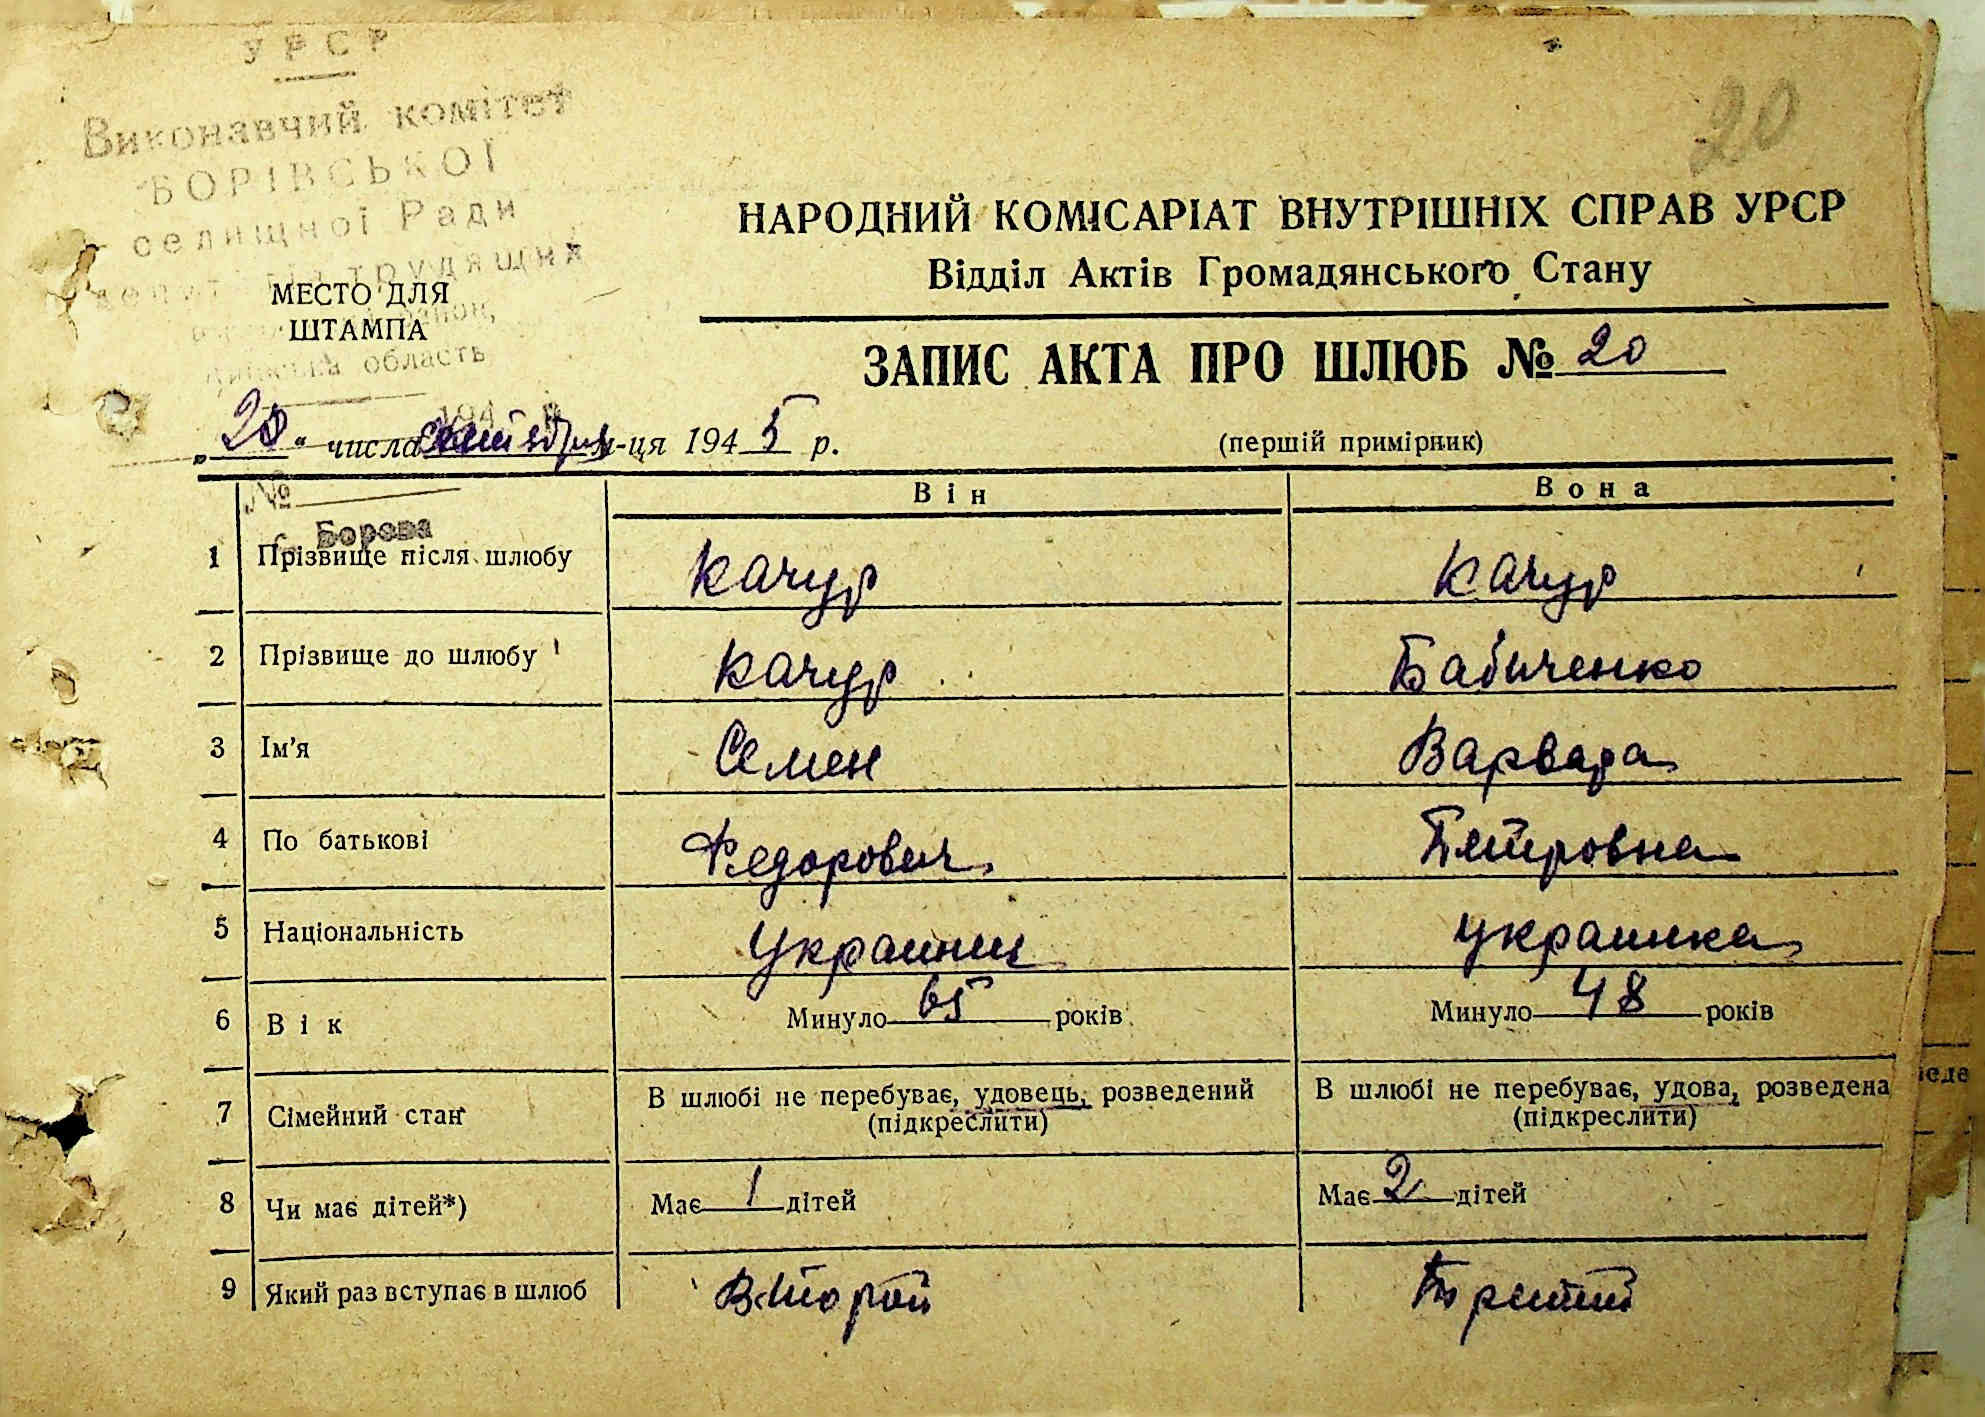 УРСР
20
Виконавчий комітет
БОРІВСЬКОЇ
селищної Ради
трудящих
НАРОДНИЙ КОМІСАРІАТ ВНУТРІШНІХ СПРАВ УРСР
Відділ Актів Громадянського Стану
МЕСТО ДЛЯ
ШТАМПА
область
ЗАПИС АКТА ПРО ШЛЮБ № 20
„20“ числа сентября м-ця 1945 р.
(першій примірник)
№
Борова
Він Вона
1 Прізвище після шлюбу Качур Качур
2 Прізвище до шлюбу Качур Бабиченко
3 Ім’я Семен Варвара
4 По батькові Федорович Петровна
5 Національність Украинец Украинка
6 Вік Минуло 65 років Минуло 48 років
7 Сімейний стан В шлюбі не перебуває, удовець, розведений В шлюбі не перебуває, удова, розведена
(підкреслити) (підкреслити)
8 Чи має дітей*) Має 1 дітей Має 2 дітей
9 Який раз вступає в шлюб Второй Третий